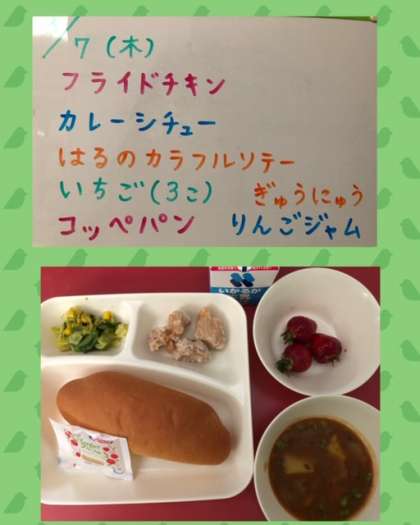 /7(木)
フライドチキン
カレーシチュー
はるのカラフルソテー
いちご(3こ) ぎゅうにゅう
コッペパン りんごジャム
いかるが